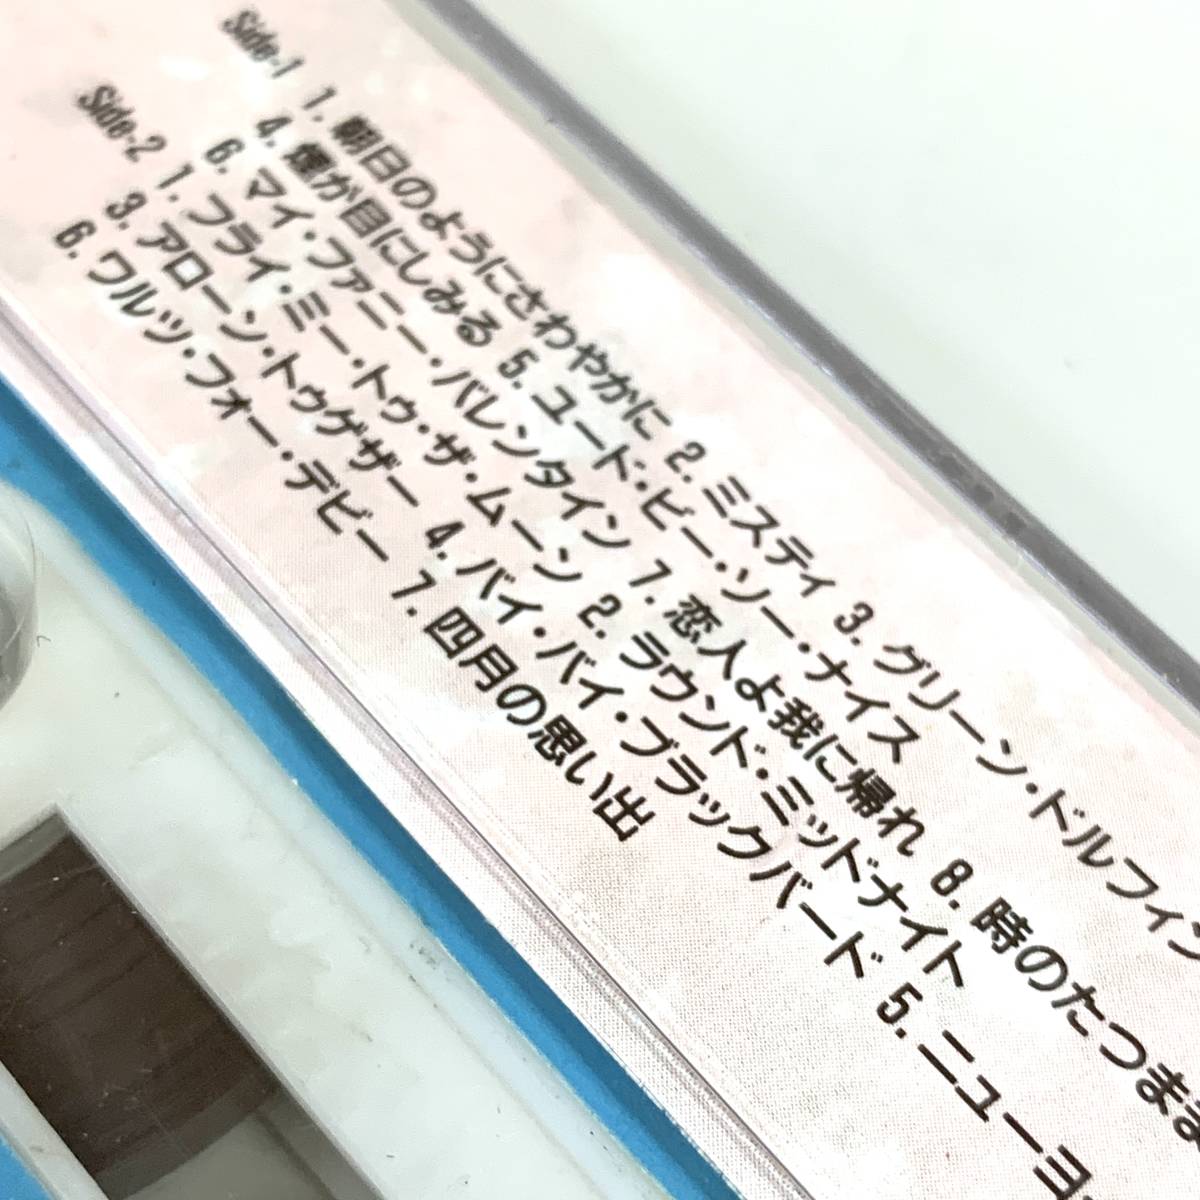 Side-1 1. 朝日のようにさわやかに 2. ミスティ 3. グリーン・ドルフィン
4. 煙が目にしみる 5. ユード・ビー・ソー・ナイス
6. マイ・ファニー・バレンタイン 7. 恋人よ我に帰れ 8. 時のたつまま
Side-2 1. フライ・ミー・トゥ・ザ・ムーン 2. ラウンド・ミッドナイト
3. アローン・トゥゲザー 4. バイ・バイ・ブラックバード 5. ニューヨ
6. ワルツ・フォー・デビー 7. 四月の思い出